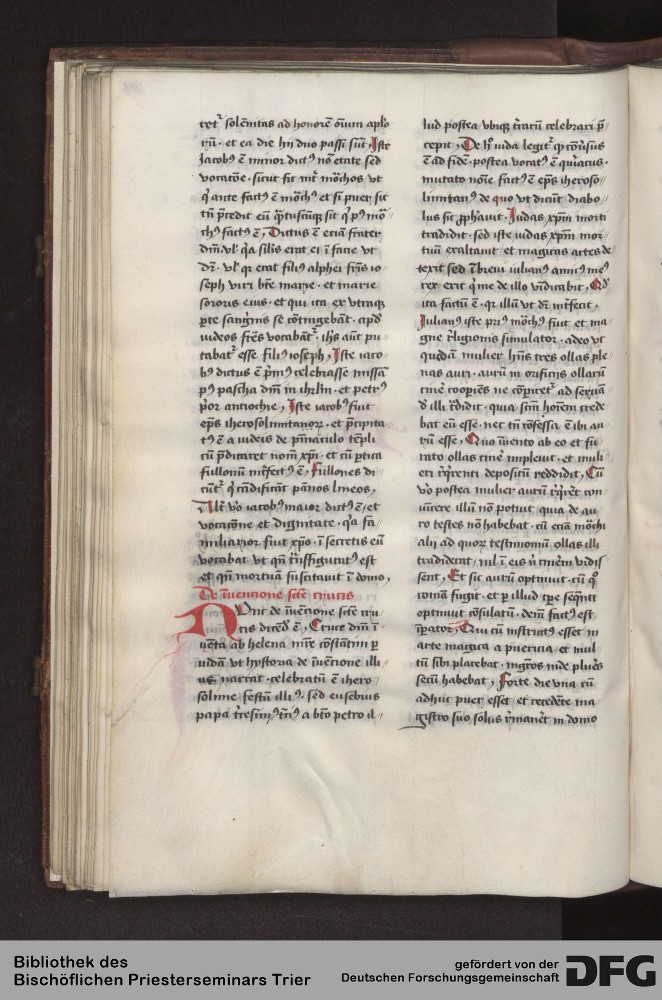 ret᷑ solēnitas ad honorē oīum aplo
rū · et ea die hij duo passi sūt Iste
Iacobꝰ ē minor dictꝰ nō etate sed
vocatōe · sicut fit int̕ mōchos vt
qͥ ante factꝰ ē mōchꝰ et si puer sit
tn̄ p̄cedit eū qͣtūcūqꝫ sit qͥ pꝰ mō
chꝰ factꝰ ē, Dictus ē eciā frater
dn̄i vl̕ qͥa sil̕is erat ei ī facie vt
dr̄ · vl̕ qꝛ erat filiꝰ alphei fr̄is io
seph viri bt̄e marie · et marie
sororis eius · et qui ita ex vtraqꝫ
ꝑte sangͥnis se cōtingebāt · apd̕
iudeos fr̄es vocabāt᷑ · ih̄s aūt pu
tabat᷑ esse filiꝰ ioseph, Iste iaco
bꝰ dictus ē pͥmꝰ celebrasse missā
pꝰ pascha dn̄i in ih̕rlm̄ · et petrꝰ
pͥor antiochie, Iste iacobꝰ fuit
ep̄s iherosolimitanoꝝ · et p̄cipita
tꝰ ē a iudeis de pīnaculo tēpli
cū p̄dicaret nomē xp̄i · et cū ꝑtica
fullonū int̕fectꝰ ē, Fullones di
cūt᷑ qͥ cādificāt pānos lineos,
Alt̕ vo̕ iacobꝰ maior dictꝰ ē et
vocacōne et dignitate · qͥa fa
miliarior fuit xp̄o · ī secretis eū
vocabat vt qn̄ trāsfigurātꝰ est
et qn̄ mortuā suscitauit ī domo,
De īuencione sct̄e crucis
Dnīt de īuencione sct̄e cru
cis dicēdū ē, Cruce dn̄i ī
uēta ab helena mr̄e cōstātini ꝑ
iudā vt hystoria de īuencione illi
us narrat · celebratū ē ihero
solime festū illiꝰ · sed eusebius
papa tͥcesimꝰ t̕ciꝰ a bt̄o petro il
lud postea vbiqꝫ t̕raꝝ celebrari p̄
cepit, De hͦ iuda legit᷑ qꝙ cōu̕sus
ē ad fidē · postea vocatꝰ ē quiriacus ·
mutato noīe factꝰ ē ep̄s iheroso
limitanꝰ de quo vt dicūt diabo
lus sic ꝓphauit · Iudas xp̄m morti
tradidit · sed iste iudas xp̄m mor
tuū exaltauit et magicas artes de
texit sed ī breui iulianꝰ amicꝰ meꝰ
rex erit qͥ me de illo vīdicabit, Qd̕
ita factū ē · qꝛ illū vt dr̄ int̕fecit,
Iulianꝰ iste priꝰ mōchꝰ fuit et ma
gne r̕ligionis simulator · adeo vt
quedā mulier hn̄s tres ollas ple
nas auri · aurū in orificijs ollarū
cine̕ coopiēs ne cōpiret᷑ ad seruā
dū illi tͣdidit · quia sc̄m hoīem crede
bat eū esse · nec tn̄ cōfessa ē ibi au
rū esse, Quo īuento ab eo et fu
rato ollas cine̕ impleuit · et muli
eri r̕qͥrenti depositū reddidit, Cū
vo̕ postea mulier aurū r̕qͥret con
uincere illū nō potuit quia de au
ro testes nō habebat · cū eciā mōchi
alij ad quoꝝ testimoniū ollas illi
tradiderat, nil ī eis nͥ cine̕m vidis
sent, Et sic aurū optinuit · cū qͦ
romā fugit · et ꝑ illud tꝑe seqn̄ti
optinuit cōsulatū · dem̄ factꝰ est
īꝑator, Qui cū instructꝰ esset in
arte magica a puericia · et mul
tū sibi placebat · mgr̄os inde plures
secū habebat, Forte die vna cū
adhuc puer esset · et recedēte ma
gistro suo solus r̕maneret in domo
Bibliothek des
Bischöflichen Priesterseminars Trier
gefördert von der
Deutschen Forschungsgemeinschaft
DFG